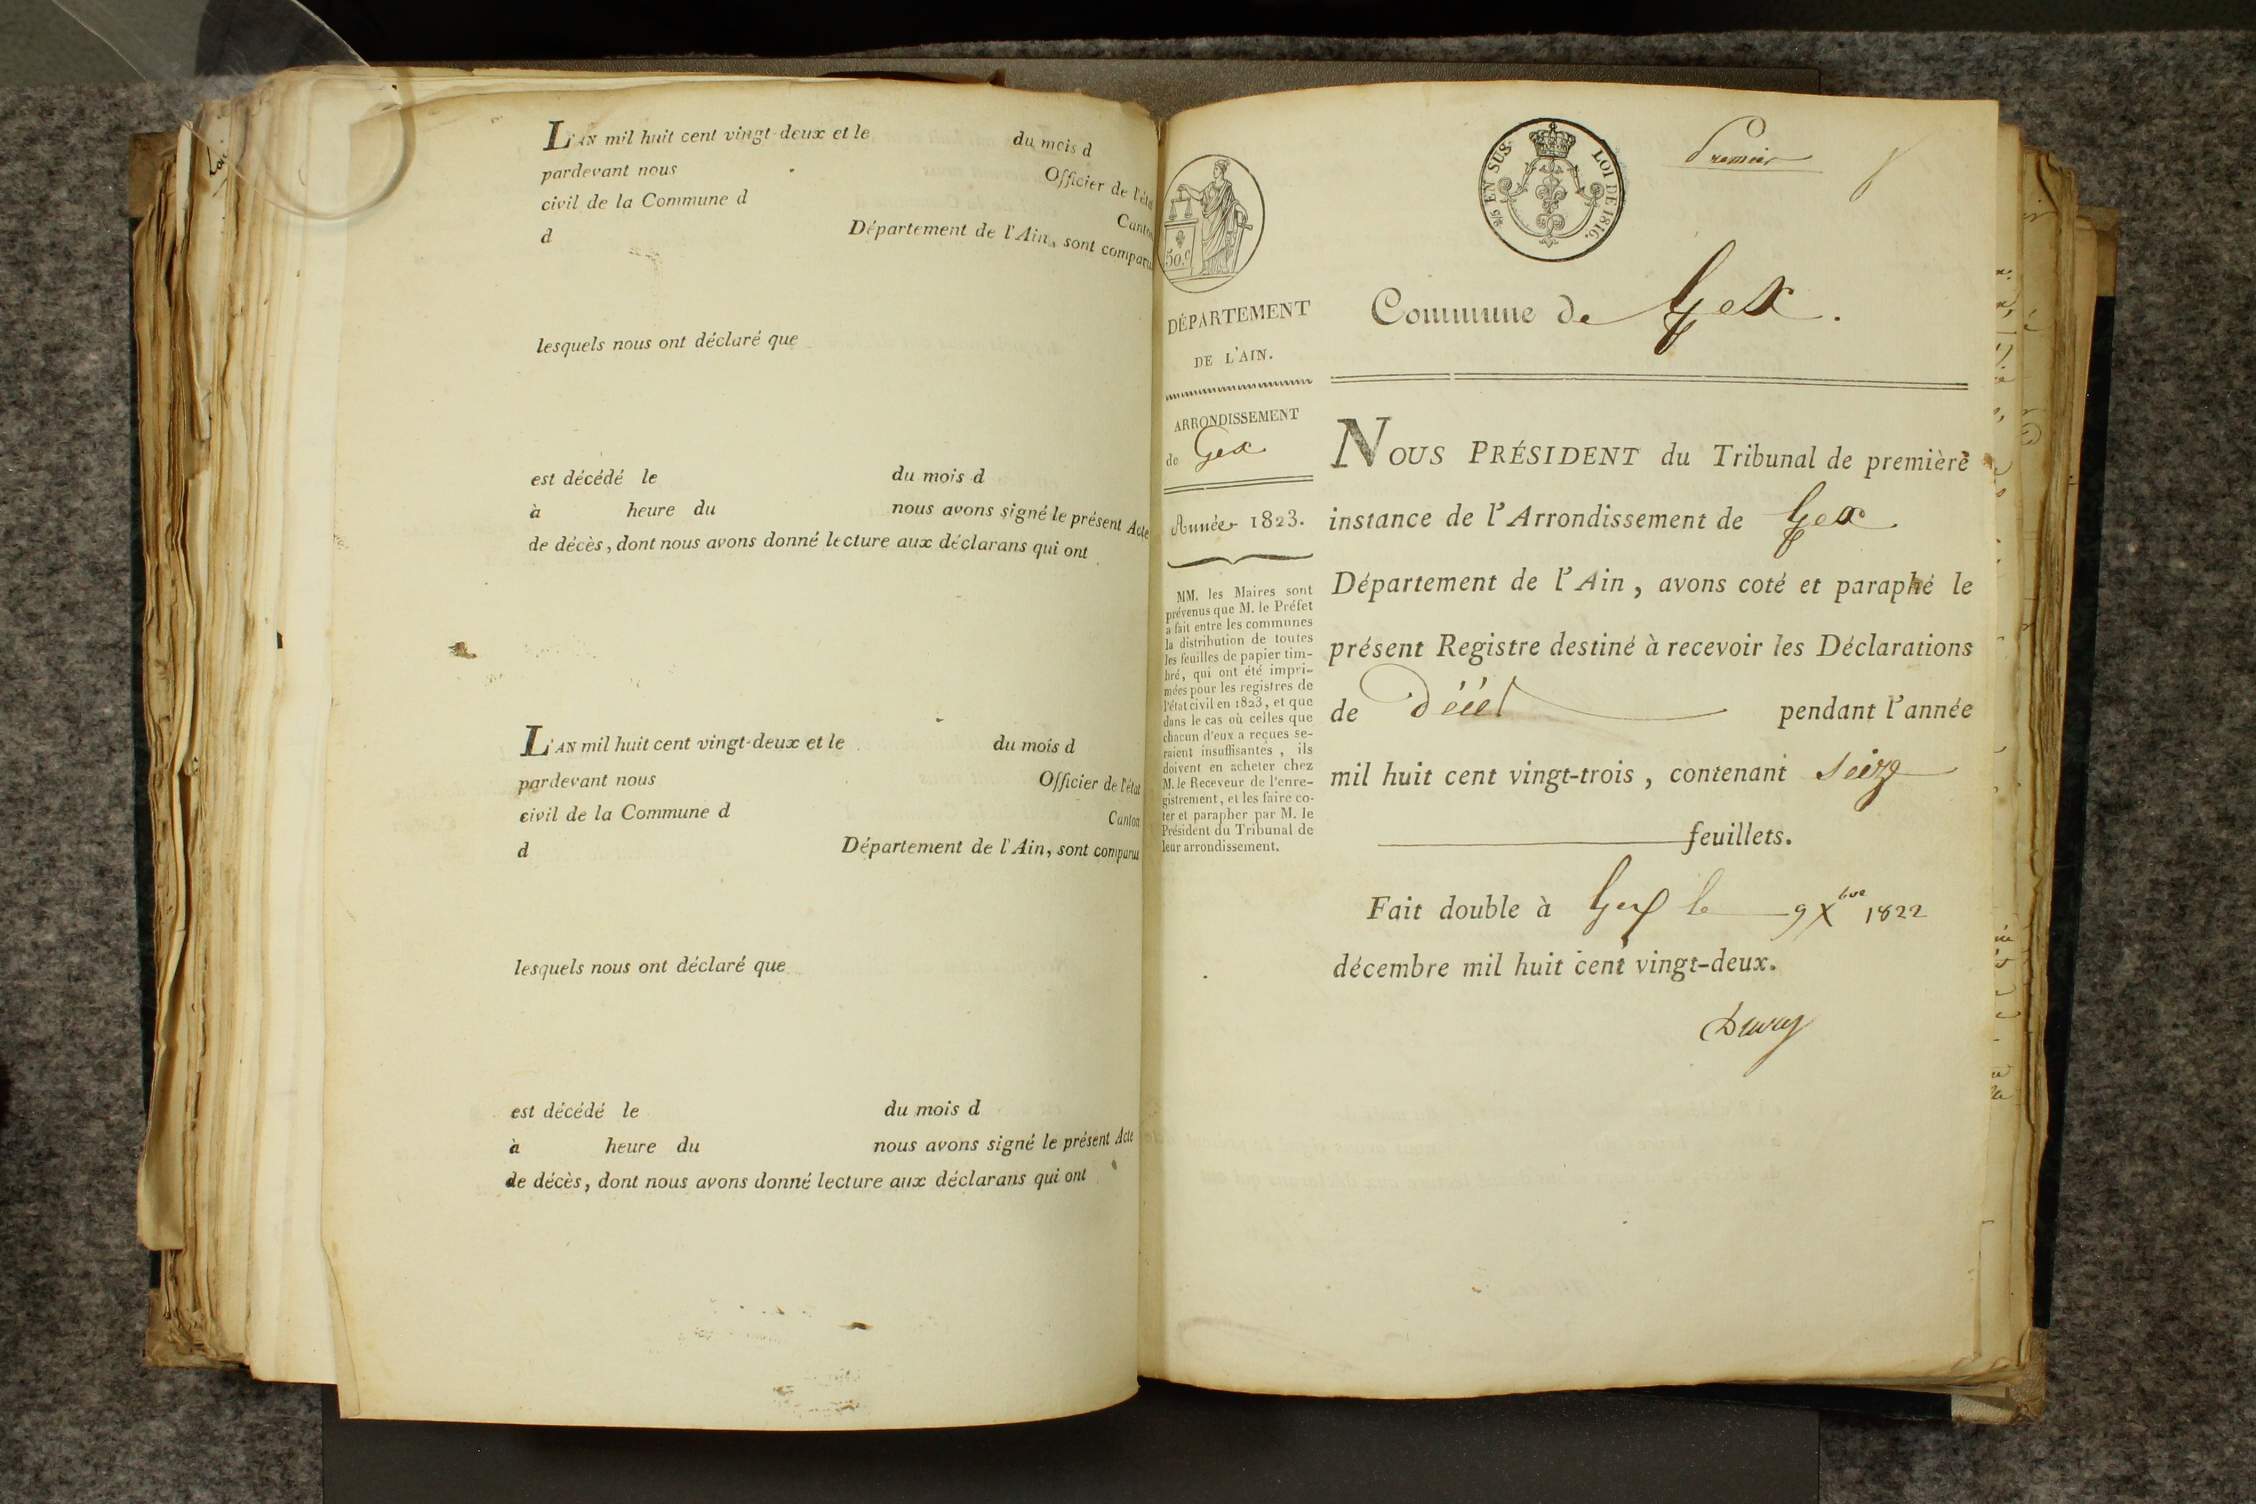 L'AN mil huit cent vingt-deux et le du mois d
pardevant nous Officier de l'état
civil de la Commune d Canton
d Département de l'Ain, sont comparus
lesquels nous ont déclaré que
est décédé le du mois d
à heure du nous avons signé le présent Acte
de décès, dont nous avons donné lecture aux déclarans qui ont
L'AN mil huit cent vingt-deux et le du mois d
pardevant nous Officier de l'état
civil de la Commune d Canton
d Département de l'Ain, sont comparus
lesquels nous ont déclaré que
est décédé le du mois d
à heure du nous avons signé le présent Acte
de décès, dont nous avons donné lecture aux déclarans qui ont
50.c
DÉPARTEMENT
DE L'AIN.
ARRONDISSEMENT
de Gex
Année 1823.
MM. les Maires sont
prévenus que M. le Préfet
a fait entre les communes
la distribution de toutes
les feuilles de papier tim-
bré, qui ont été impri-
mées pour les registres de
l'état civil en 1823, et que
dans le cas où celles que
chacun d'eux a reçues se-
raient insuffisantes, ils
doivent en acheter chez
M. le Receveur de l'enre-
gistrement, et les faire co-
ter et parapher par M. le
Président du Tribunal de
leur arrondissement.
EN SUS. LOI DE 1816.
Premier
Commune de Gex.
NOUS PRÉSIDENT du Tribunal de première
instance de l'Arrondissement de Gex
Département de l'Ain, avons coté et paraphé le
présent Registre destiné à recevoir les Déclarations
de Décès pendant l'année
mil huit cent vingt-trois, contenant seize
feuillets.
Fait double à Gex le 9 Xbre 1822
décembre mil huit cent vingt-deux.